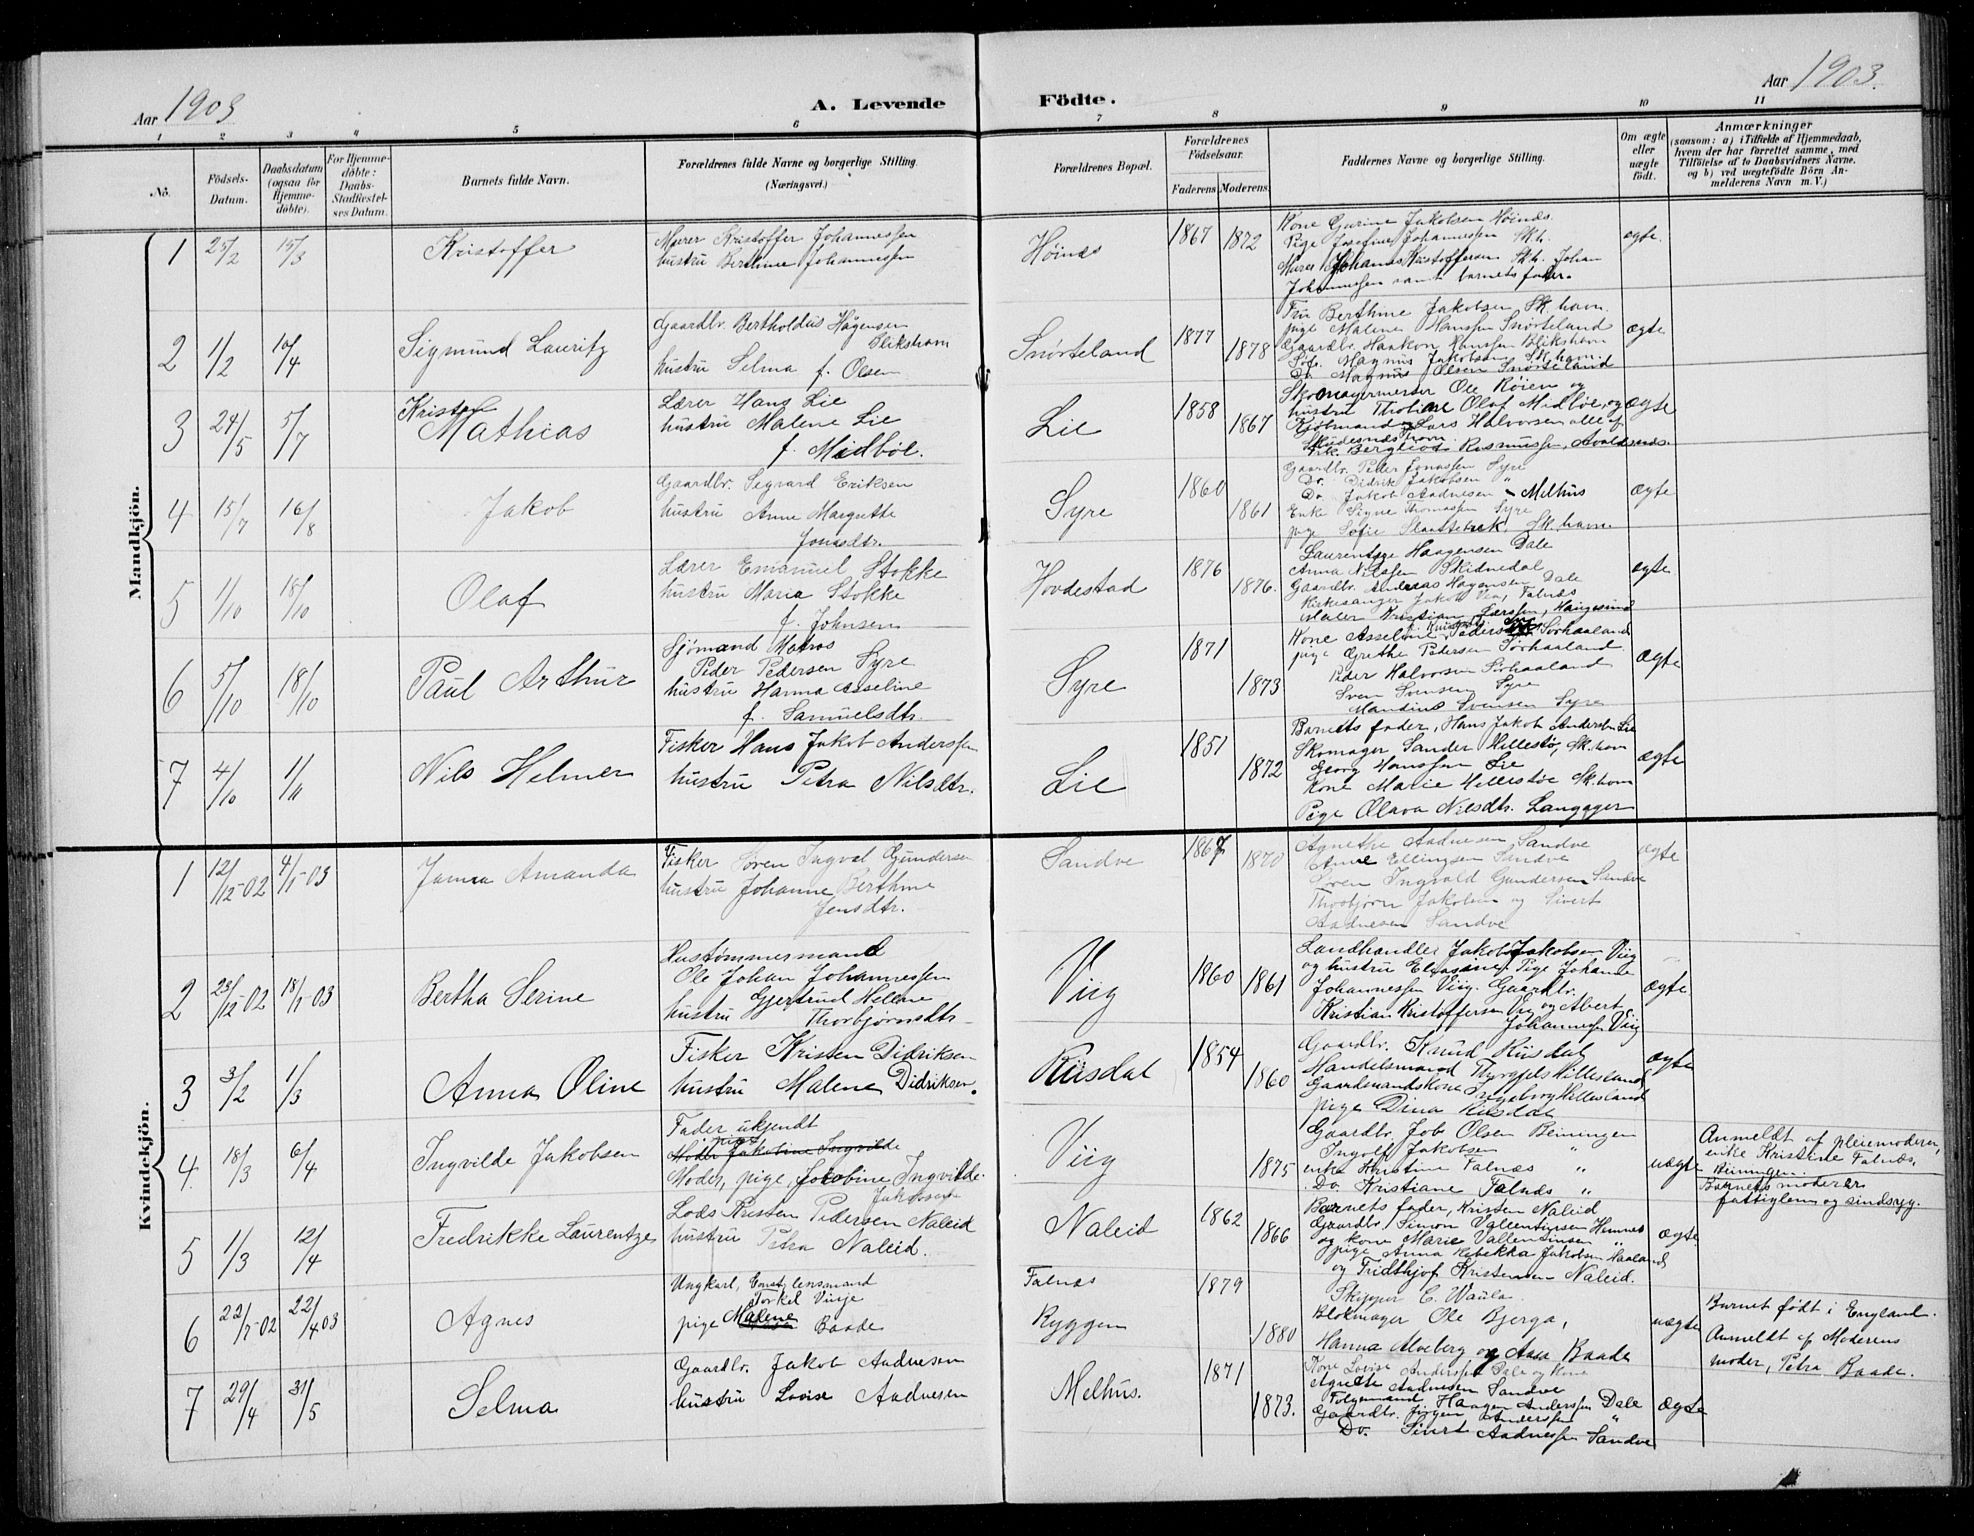 Aar 1903
A. Levende
Födte.
Aar 1903.
1 2 3 4 5 6 7 8 9 10 11
No.
Födsels-Datum.
Daabsdatum (ogsaa för Hjemmedöbte).
For Hjemmedöbte: Daabs-Stadfæstelses Datum.
Barnets fulde Navn.
Forældrenes fulde Navne og borgerlige Stilling. (Næringsvei.)
Forældrenes Bopæl.
Forældrenes Födselsaar.
Faderens Moderens
Faddernes Navne og borgerlige Stilling.
Om ægte eller uægte födt.
Anmærkninger
(saasom: a) i Tilfælde af Hjemmedaab, hvem der har forrettet samme, med Tilföielse af to Daabsvidners Navne. og b) ved uægtefödte Börn Anmelderens Navn m. V.)
Mandkjön.
1 25/2 15/3 Kristoffer
Murer Kristoffer Johannessen
hustru Berthine Johannessen
Höinæs 1867 1872
Kone Gurine Jakobsen Höinæs.
Pige Josefine Johannessen Sk.h.
Murer Johannes Kristoffersen Sk.h. Johan
Johannessen samt barnets fader.
ægte.
2 1/2 10/4 Sigmund Lauritz
Gaardbr. Bertholdus Hågensen
Blikshavn
hustru Selma f. Olsen
Snörteland 1877 1878
Fru Berthine Jakobsen, Sk.havn
pige Malene Hanssen Snörteland
Gaardbr. Haakon Hanssen Blikshavn
Söf. Magnus Jakobsen Sk.havn.
Do Magnus Olsen Snörteland
ægte
3 24/5 5/7 Kristoff
Mathias
Lærer Hans Lie
hustru Malene Lie
f. Midböe.
Lie 1858 1867
Skomagermester Ole Röien og
hustru Tholine Olaf Midböe, og
Kjöbmand Lars Halvorsen alle af
Skudesnæshavn.
Frk. Bergliot Rasmussen, Avaldsnæs.
ægte
4 15/7 16/8 Jakob
Gaardbr. Segvard Eriksen
hustru Anne Margrethe
Jonasdtr.
Syre 1860 1861
Gaardbr. Peder Jonassen Syre
Do. Didrik Jakobsen "
Do Jakob Aadnesen Melhus
Enke Signe Thomassen Syre
pige Sofie Slaattebræk Sk.havn
ægte
5 1/10 18/10 Olaf
Lærer Emanuel Stokke
hustru Maria Stokke
f. Johnsen
Hovdestad 1876 1876.
Laurentze Haagensen Dale
Anna Nilssen Skidnedal
Gaardbr. Andreas Hagensen Dale
Kirkesanger Jakob Vea, Falnæs
Maler Kristian Lærssen, Haugesund
ægte
6 5/10 18/10 Paul Arthur
Sjömand Matros
Peder Pedersen Syre
hustru Hanna Asseline
f. Samuelsdtr.
Syre 1871 1873
Kone Asseline Peders Sörhaaland
pige Grethe Petersen Sörhaaland
Peder Halvorsen Sörhaaland
Sven Svensen Syre
Mandius Svensen Syre
ægte
7 4/10 1/11 Nils Helmer
Fisker Hans Jakob Anderssen
hustru Petra Nilsdtr.
Lie 1851 1872
Barnets fader, Hans Jakob Andersen Lie
Skomager Sander Hillestö, Sk.havn
Georg Hanssen Lie
Kone Marie Hillestöe Sk.havn
Pige Olava Nilsdtr. Langager
ægte
Kvindekjön.
1 12/12-02 4/1-03 Janna Amanda
Fisker Sören Ingval Gundersen
hustru Johanne Berthine
Jensdtr.
Sandve 1867 1870
Agnethe Aadnesen Sandve
Anne Ellingsen Sandve
Sören Ingvald Gundersen Sandve
Thorbjörn Jakobsen og Sivert
Aadnesen Sandve
ægte
2 23/12-02 18/1-03 Bertha Serine
Hustömmermand
Ole Johan Johannessen
hustru Gjertrud Helene
Thorbjörnsdtr.
Viig 1860 1861
Landhandler Jakob Jakobsen Viig
og hustru Elvasine, Pige Johanne
Johannessen Viig. Gaardbr.
Kristian Kristoffersen Vig og Albert
Johannessen Viig
ægte
3 3/2 1/3 Anna Oline
Fisker Kristen Didriksen
hustru Malene Didriksen.
Riisdal 1854 1860
Gaardbr. Knud Riisdal
Handelsmand Thygels Hillesland
Gaardmandskone Ingeborg Hillesland
pige Dina Riisdal
ægte
4. 18/3 6/4 Ingvilde Jakobsen
Fader ukjendt
pige
Moder Jakobine Ingvilde
Moder, pige, Jakobine Ingvilde
Jakobsen
Viig 1875
Gaardbr. Job Olsen Beiningen
Ingolf Jakobsen "
enke Kristine Falnæs "
Do. Kristiane Falnæs "
uægte
Anmeldt af pleiemoderen,
enke Kristine Falnæs,
Beiningen.
Barnets moder er
fattiglem og sindssyg.
5 1/3 12/4 Fredrikke Laurentze
Lods Kristen Pedersen Naleid
hustru Petra Naleid.
Naleid 1862 1866
Barnets fader, Kristen Naleid
Gaardbr. Simon Vallentinsen Hemnes
og kone Marie Vallentinsen "
pige Anna Rebekka Jakobsen Haaland
og Fridthjof Kristensen Naleid.
ægte.
6 22/7-02 22/4 03 Agnes
Ungkarl, Const. lensmand
Torkel Vinje
pige Malene Baade
Falnæs
Ryggen 1879 1880
Skipper C. Waula.
Blokmager Ole Bjerga,
Hanna Alveberg og Asa Baade
uægte
Barnet födt i England.
Anmeldt af Moderens
moder, Petra Baade.
7 29/4 31/5 Selma
Gaardbr. Jakob Aadnesen
hustru Lovise Aadnesen
Melhus. 1871 1873.
Kone Lovise Anderssen Dale og Kone
Agnete Aadnesen Sandve
Haagen Anderssen Dale
Gaardbr. Jörgen Anderssen "
Do. Sivert Aadnessen Sandve
ægte